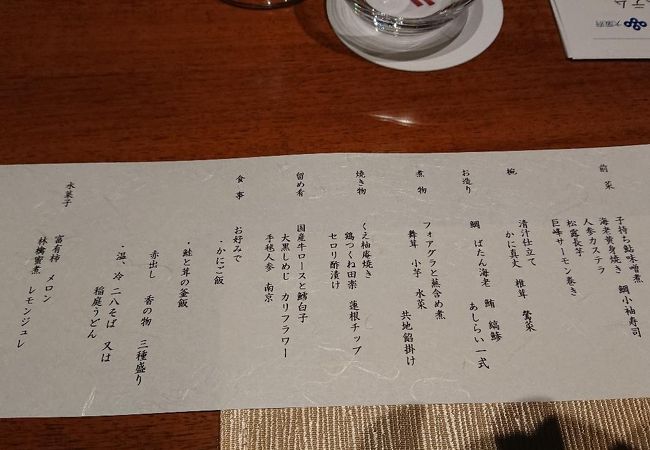 前菜
子持ち鮎味噌煮　鯛小袖寿司
海老黄身焼き
人参カステラ
松露長芋
巨峰サーモン巻き
椀
清汁仕立て
かに真丈　椎茸　鶯菜
お造り
鯛　ぼたん海老　鮪　縞鯵
あしらい一式
煮物
フォアグラと蕪含め煮
舞茸　小芋　水菜
共地餡掛け
焼き物
くえ柚庵焼き
鶏つくね田楽　蓮根チップ
セロリ酢漬け
留め肴
国産牛ロースと鱈白子
大黒しめじ　カリフラワー
手毬人参　南京
食事
お好みで
・かにご飯
・鮭と茸の釜飯
赤出し　香の物　三種盛り
・温、冷　二八そば　又は
稲庭うどん
水菓子
富有柿　メロン
林檎蜜煮　レモンジュレ
大阪府